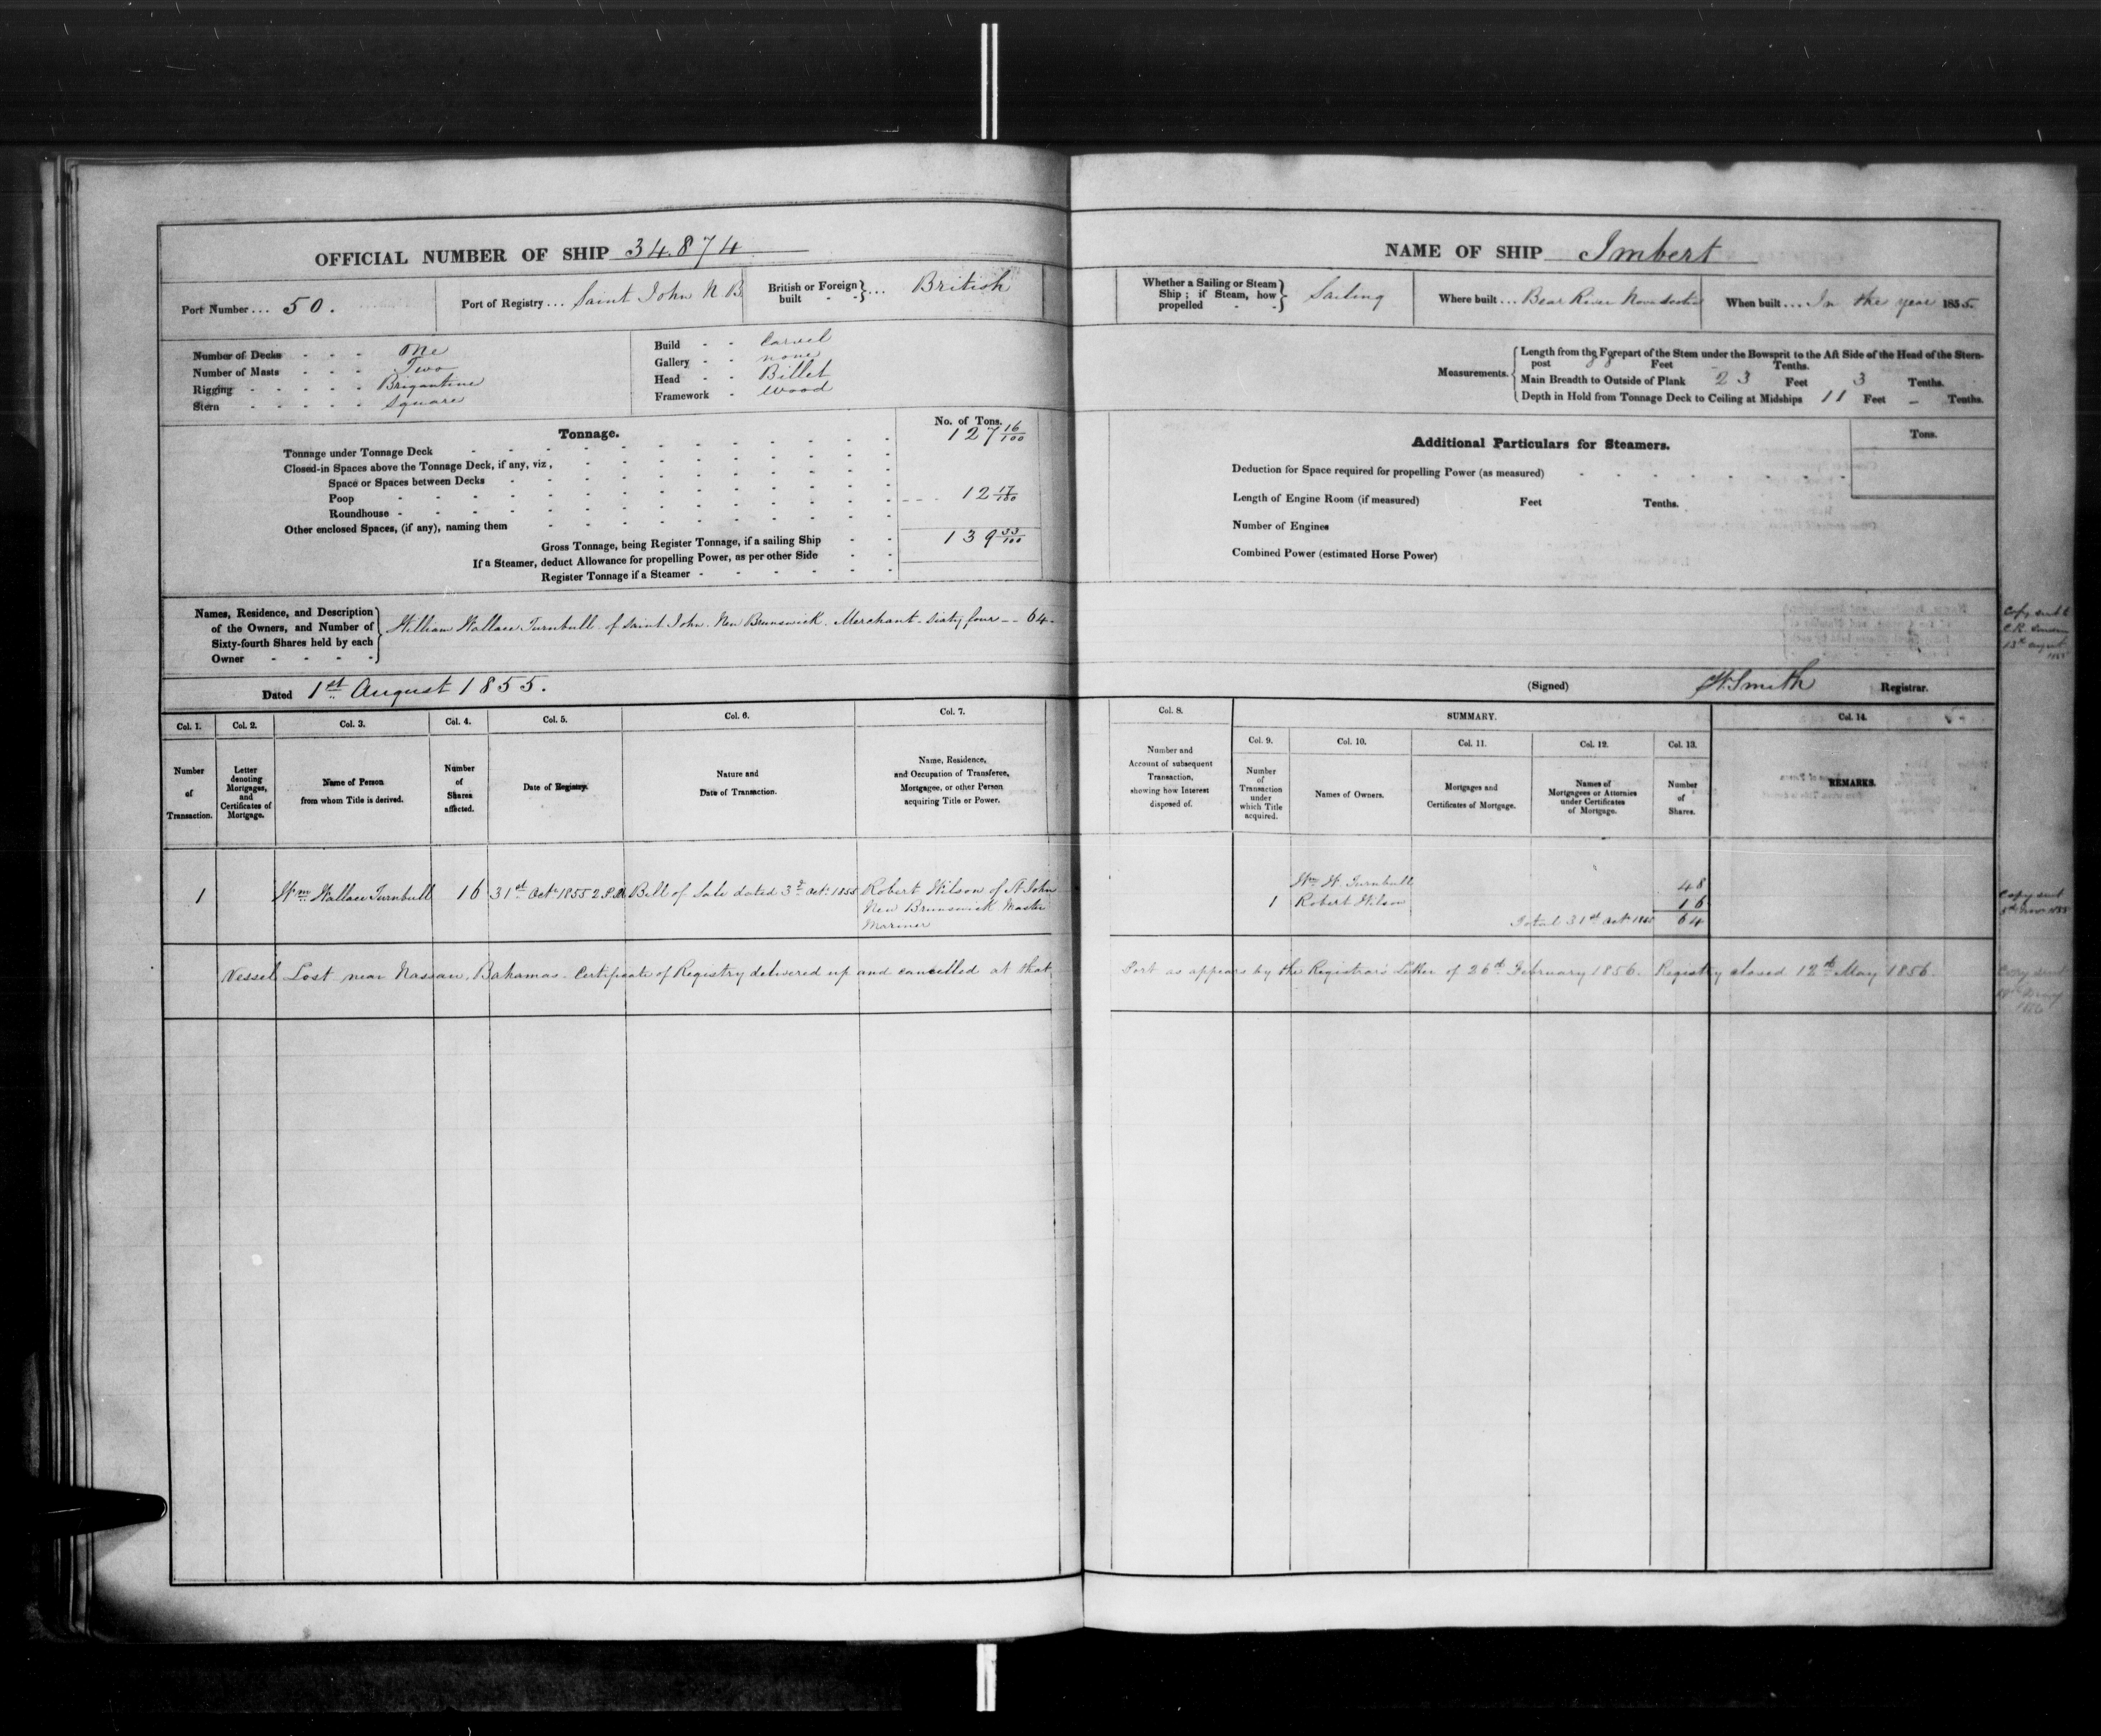 OFFICIAL NUMBER OF SHIP 34.874
Port Number ... 50.
Port of Registry ... Saint John N B
British or Foreign built - - } ... British
Number of Decks - - - One
Number of Masts - - - Two
Rigging - - - - - Brigantine
Stern - - - - - Square
Build - - Carvel
Gallery - - none
Head - - Billet
Framework - Wood
Tonnage.
No. of Tons.
Tonnage under Tonnage Deck 127 16/100
Closed-in Spaces above the Tonnage Deck, if any, viz,
Space or Spaces between Decks
Poop 12 17/100
Roundhouse
Other enclosed Spaces, (if any), naming them
Gross Tonnage, being Register Tonnage, if a sailing Ship 139 33/100
If a Steamer, deduct Allowance for propelling Power, as per other Side
Register Tonnage if a Steamer
Names, Residence, and Description
of the Owners, and Number of
Sixty-fourth Shares held by each
Owner
William Wallace Turnbull of Saint John New Brunswick. Merchant Sixty four -- 64
Dated 1st August 1855.
Col. 1. Col. 2. Col. 3. Col. 4. Col. 5. Col. 6. Col. 7.
Number of Transaction.
Letter denoting Mortgages, and Certificates of Mortgage.
Name of Person from whom Title is derived.
Number of Shares affected.
Date of Registry.
Nature and Date of Transaction.
Name, Residence, and Occupation of Transferee, Mortgagee, or other Person acquiring Title or Power.
1 Wm Wallace Turnbull 16 31st Octr 1855 2 P.M. Bill of Sale dated 3d Octr 1855 Robert Wilson of St John
New Brunswick Master
Mariner
Vessel Lost near Nassau, Bahamas. Certificate of Registry delivered up and cancelled at that
NAME OF SHIP Imbert
Whether a Sailing or Steam Ship ; if Steam, how propelled - - } Sailing
Where built ... Bear River Nova Scotia
When built ... In the year 1855.
Measurements.
Length from the Forepart of the Stem under the Bowsprit to the Aft Side of the Head of the Stern-
post 88 Feet - Tenths.
Main Breadth to Outside of Plank 23 Feet 3 Tenths.
Depth in Hold from Tonnage Deck to Ceiling at Midships 11 Feet - Tenths.
Additional Particulars for Steamers.
Tons.
Deduction for Space required for propelling Power (as measured)
Length of Engine Room (if measured) Feet Tenths.
Number of Engines
Combined Power (estimated Horse Power)
Copy sent to
C.R. London
13th August
1855
(Signed) W. Smith Registrar.
Col. 8. SUMMARY. Col. 14.
Col. 9. Col. 10. Col. 11. Col. 12. Col. 13.
Number and Account of subsequent Transaction, showing how Interest disposed of.
Number of Transaction under which Title acquired.
Names of Owners.
Mortgages and Certificates of Mortgage.
Names of Mortgagees or Attornies under Certificates of Mortgage.
Number of Shares.
REMARKS.
Wm W. Turnbull 48
1 Robert Wilson 16
Total 31st Octr 1855 64
Copy sent
Novr 1855
Port as appears by the Registrar's Letter of 26th February 1856. Registry closed 12th May 1856.
Copy sent
1856